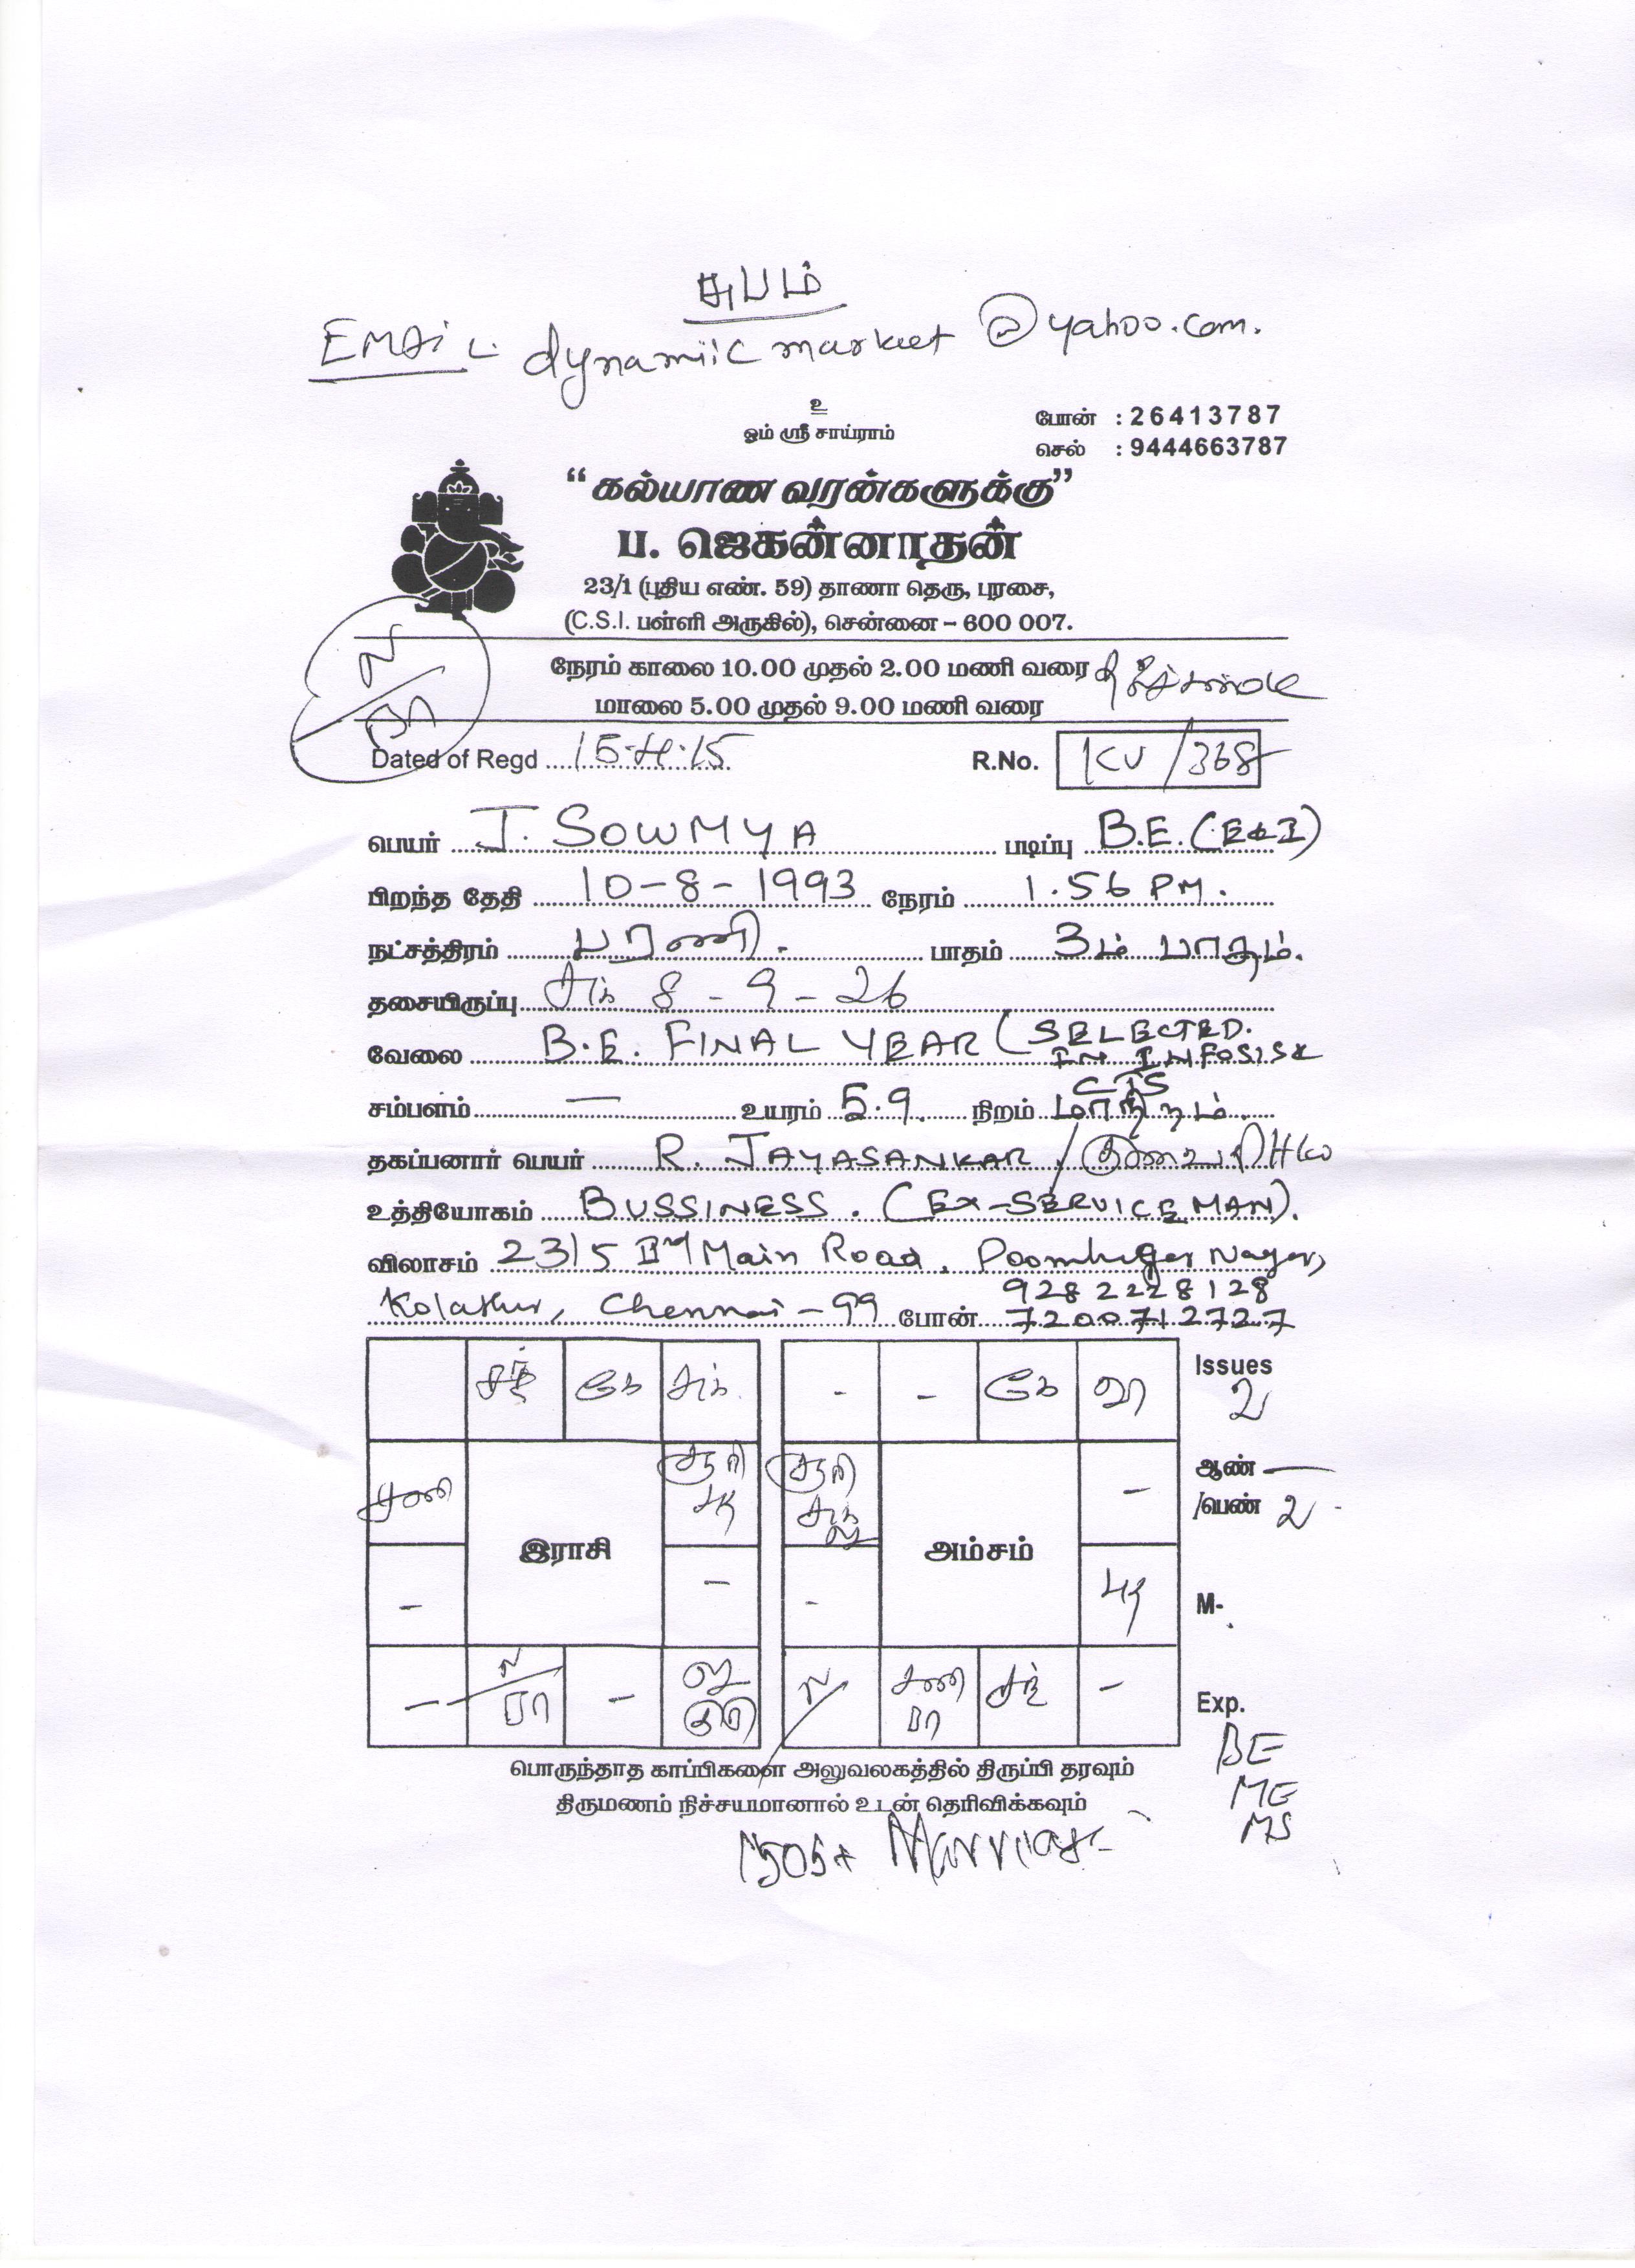 சுபம்
EMAIL: dynamiicmarket@yahoo.com.
உ
ஓம் ஸ்ரீ சாய்ராம்
போன் : 26413787
செல் : 9444663787
“கல்யாண வரன்களுக்கு”
ப. ஜெகன்னாதன்
23/1 (புதிய எண். 59) தாணா தெரு, புரசை,
(C.S.I. பள்ளி அருகில்), சென்னை - 600 007.
ல/ரா
நேரம் காலை 10.00 முதல் 2.00 மணி வரை
மாலை 5.00 முதல் 9.00 மணி வரை
Dated of Regd 15.4.15 R.No. KV/368
பெயர் J. SOWMYA படிப்பு B.E. (E&I)
பிறந்த தேதி 10-8-1993 நேரம் 1.56 PM.
நட்சத்திரம் பரணி. பாதம் 3ம் பாதம்.
தசையிருப்பு சுக் 8-9-26
வேலை B.E. FINAL YEAR (SELECTED.
IN INFOSIS &
CTS
சம்பளம் — உயரம் 5.9 நிறம் மாநிறம்
தகப்பனார் பெயர் R. JAYASANKAR /
உத்தியோகம் BUSSINESS. (EX-SERVICE MAN).
விலாசம் 23/5 IInd Main Road, Poombugar Nagar,
9282228128
Kolathur, Chennai-99 போன் 7200712727
சந் கே சுக் - - கே வி Issues
2
சனி சூரி புத சூரி சுக் ல - ஆண் —
/பெண் 2
இராசி அம்சம்
- - - புத M-
- ல/ரா - ல குரு ல சனி ரா சந் - Exp.
BE
ME
MS
பொருந்தாத காப்பிகளை அலுவலகத்தில் திருப்பி தரவும்
திருமணம் நிச்சயமானால் உடன் தெரிவிக்கவும்
Marriage